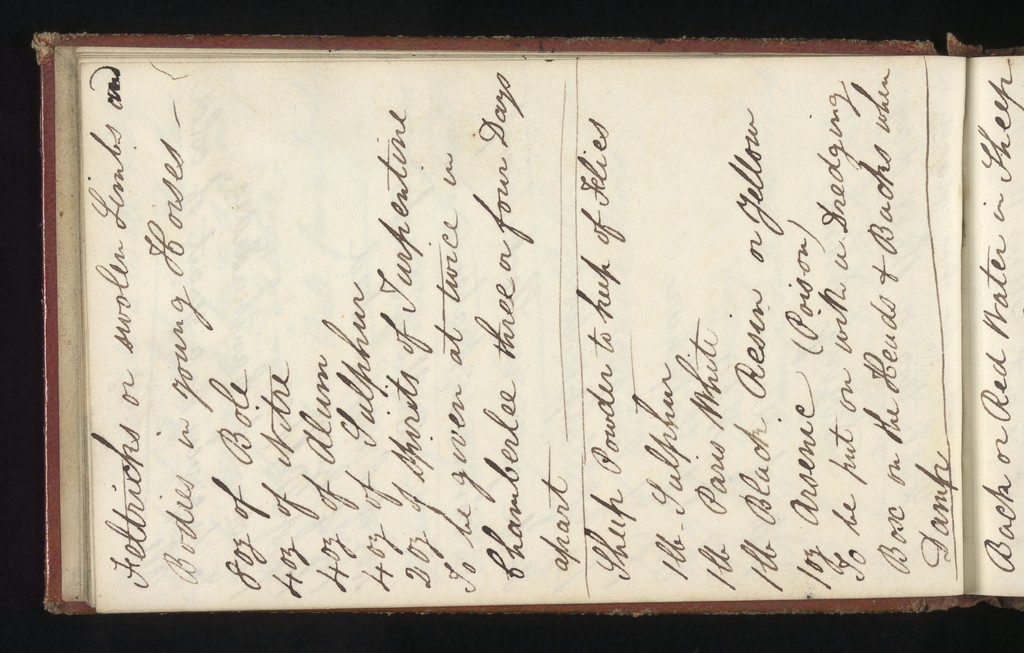 Felttricks or swolen Limbs and
Bodies in young Horses —
8oz of Bole
4oz of Nitre
4oz of Alum
4oz of Sulphur
2oz of Spirits of Turpentine
To be given at twice in
Chamberlee three or four Days
apart
Sheep Powder to keep of Flies
1lb Sulphur
1lb Paris White
1lb Black Resin or Yellow
1oz Arsenic (Poison)
To be put on with a Dredging
Box on the Heads & Backs when
Damp
Back or Red Water in Sheep